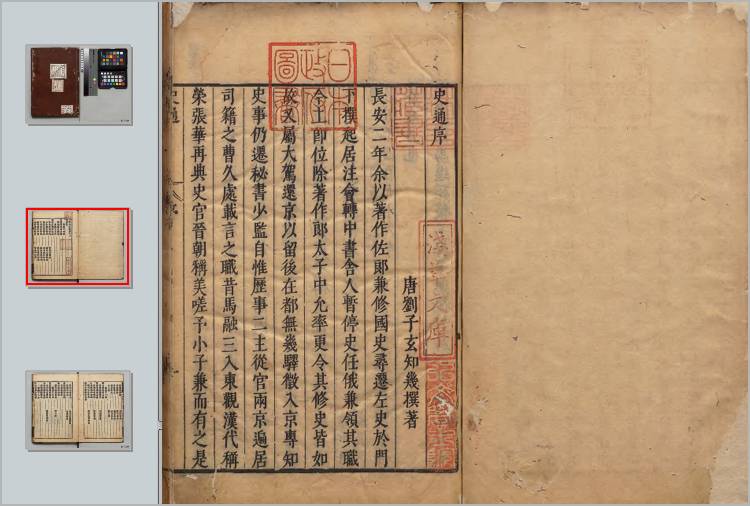 史通序
唐劉子玄知幾撰著
長安二年余以著作佐郎兼修國史尋遷左史於門
下撰起居注會轉中書舍人暫停史任俄兼領其職
今上即位除著作郎太子中允率更令其修史皆如
故又屬大駕還京以留後在都無幾驛徵入京專知
史事仍遷秘書少監自惟歷事二主從官兩京遍居
司籍之曹久處載言之職昔馬融三入東觀漢代稱
榮張華再典史官晉朝稱美嗟予小子兼而有之是
史通
日本
政府
圖書
淺草文庫